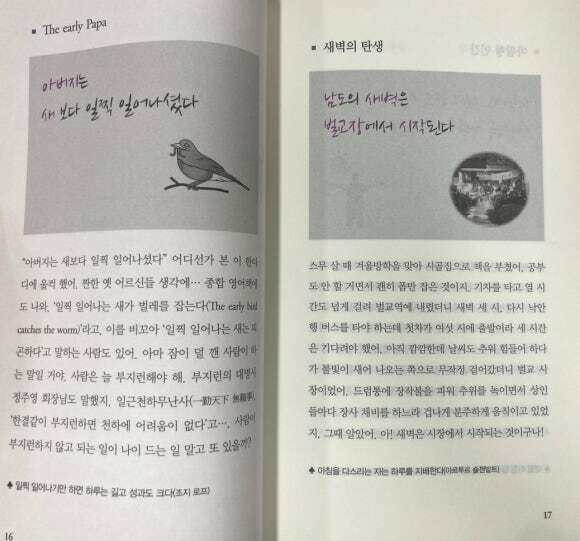 ■ The early Papa
아버지는
새 보다 일찍 일어나셨다
"아버지는 새보다 일찍 일어나셨다" 어디선가 본 이 한마
디에 울컥 했어. 짠한 옛 어르신들 생각에… 종합 영어책에
도 나와. '일찍 일어나는 새가 벌레를 잡는다(The early bird
catches the worm)'라고, 이를 비꼬아 '일찍 일어나는 새는 피
곤하다'고 말하는 사람도 있어. 아마 잠이 덜 깬 사람이 하
는 말일 거야. 사람은 늘 부지런해야 해. 부지런의 대명사
정주영 회장님도 말했지. 일근천하무난사(一勤天下 無難事),
'한결같이 부지런하면 천하에 어려움이 없다'고…, 사람이
부지런하지 않고 되는 일이 나이 드는 일 말고 또 있을까?
♠ 일찍 일어나기만 하면 하루는 길고 성과도 크다(조지 로프)
16
■ 새벽의 탄생
남도의 새벽은
벌교장에서 시작된다
스무 살 때 겨울방학을 맞아 시골집으로 책을 부쳤어. 공부
도 안 할 거면서 괜히 폼만 잡은 것이지. 기차를 타고 열 시
간도 넘게 걸려 벌교역에 내렸더니 새벽 세 시. 다시 낙안
행 버스를 타야 하는데 첫차가 여섯 시에 출발이라 세 시간
은 기다려야 했어. 아직 깜깜한데 날씨도 추워 힘들어 하다
가 불빛이 새어 나오는 쪽으로 무작정 걸어갔더니 벌교 시
장이었어. 드럼통에 장작불을 피워 추위를 녹이면서 상인
들마다 장사 채비를 하느라 겁나게 분주하게 움직이고 있었
지. 그때 알았어. 아! 새벽은 시장에서 시작되는 것이구나!
♠ 아침을 다스리는 자는 하루를 지배한다(아르투르 쇼펜하우어)
17